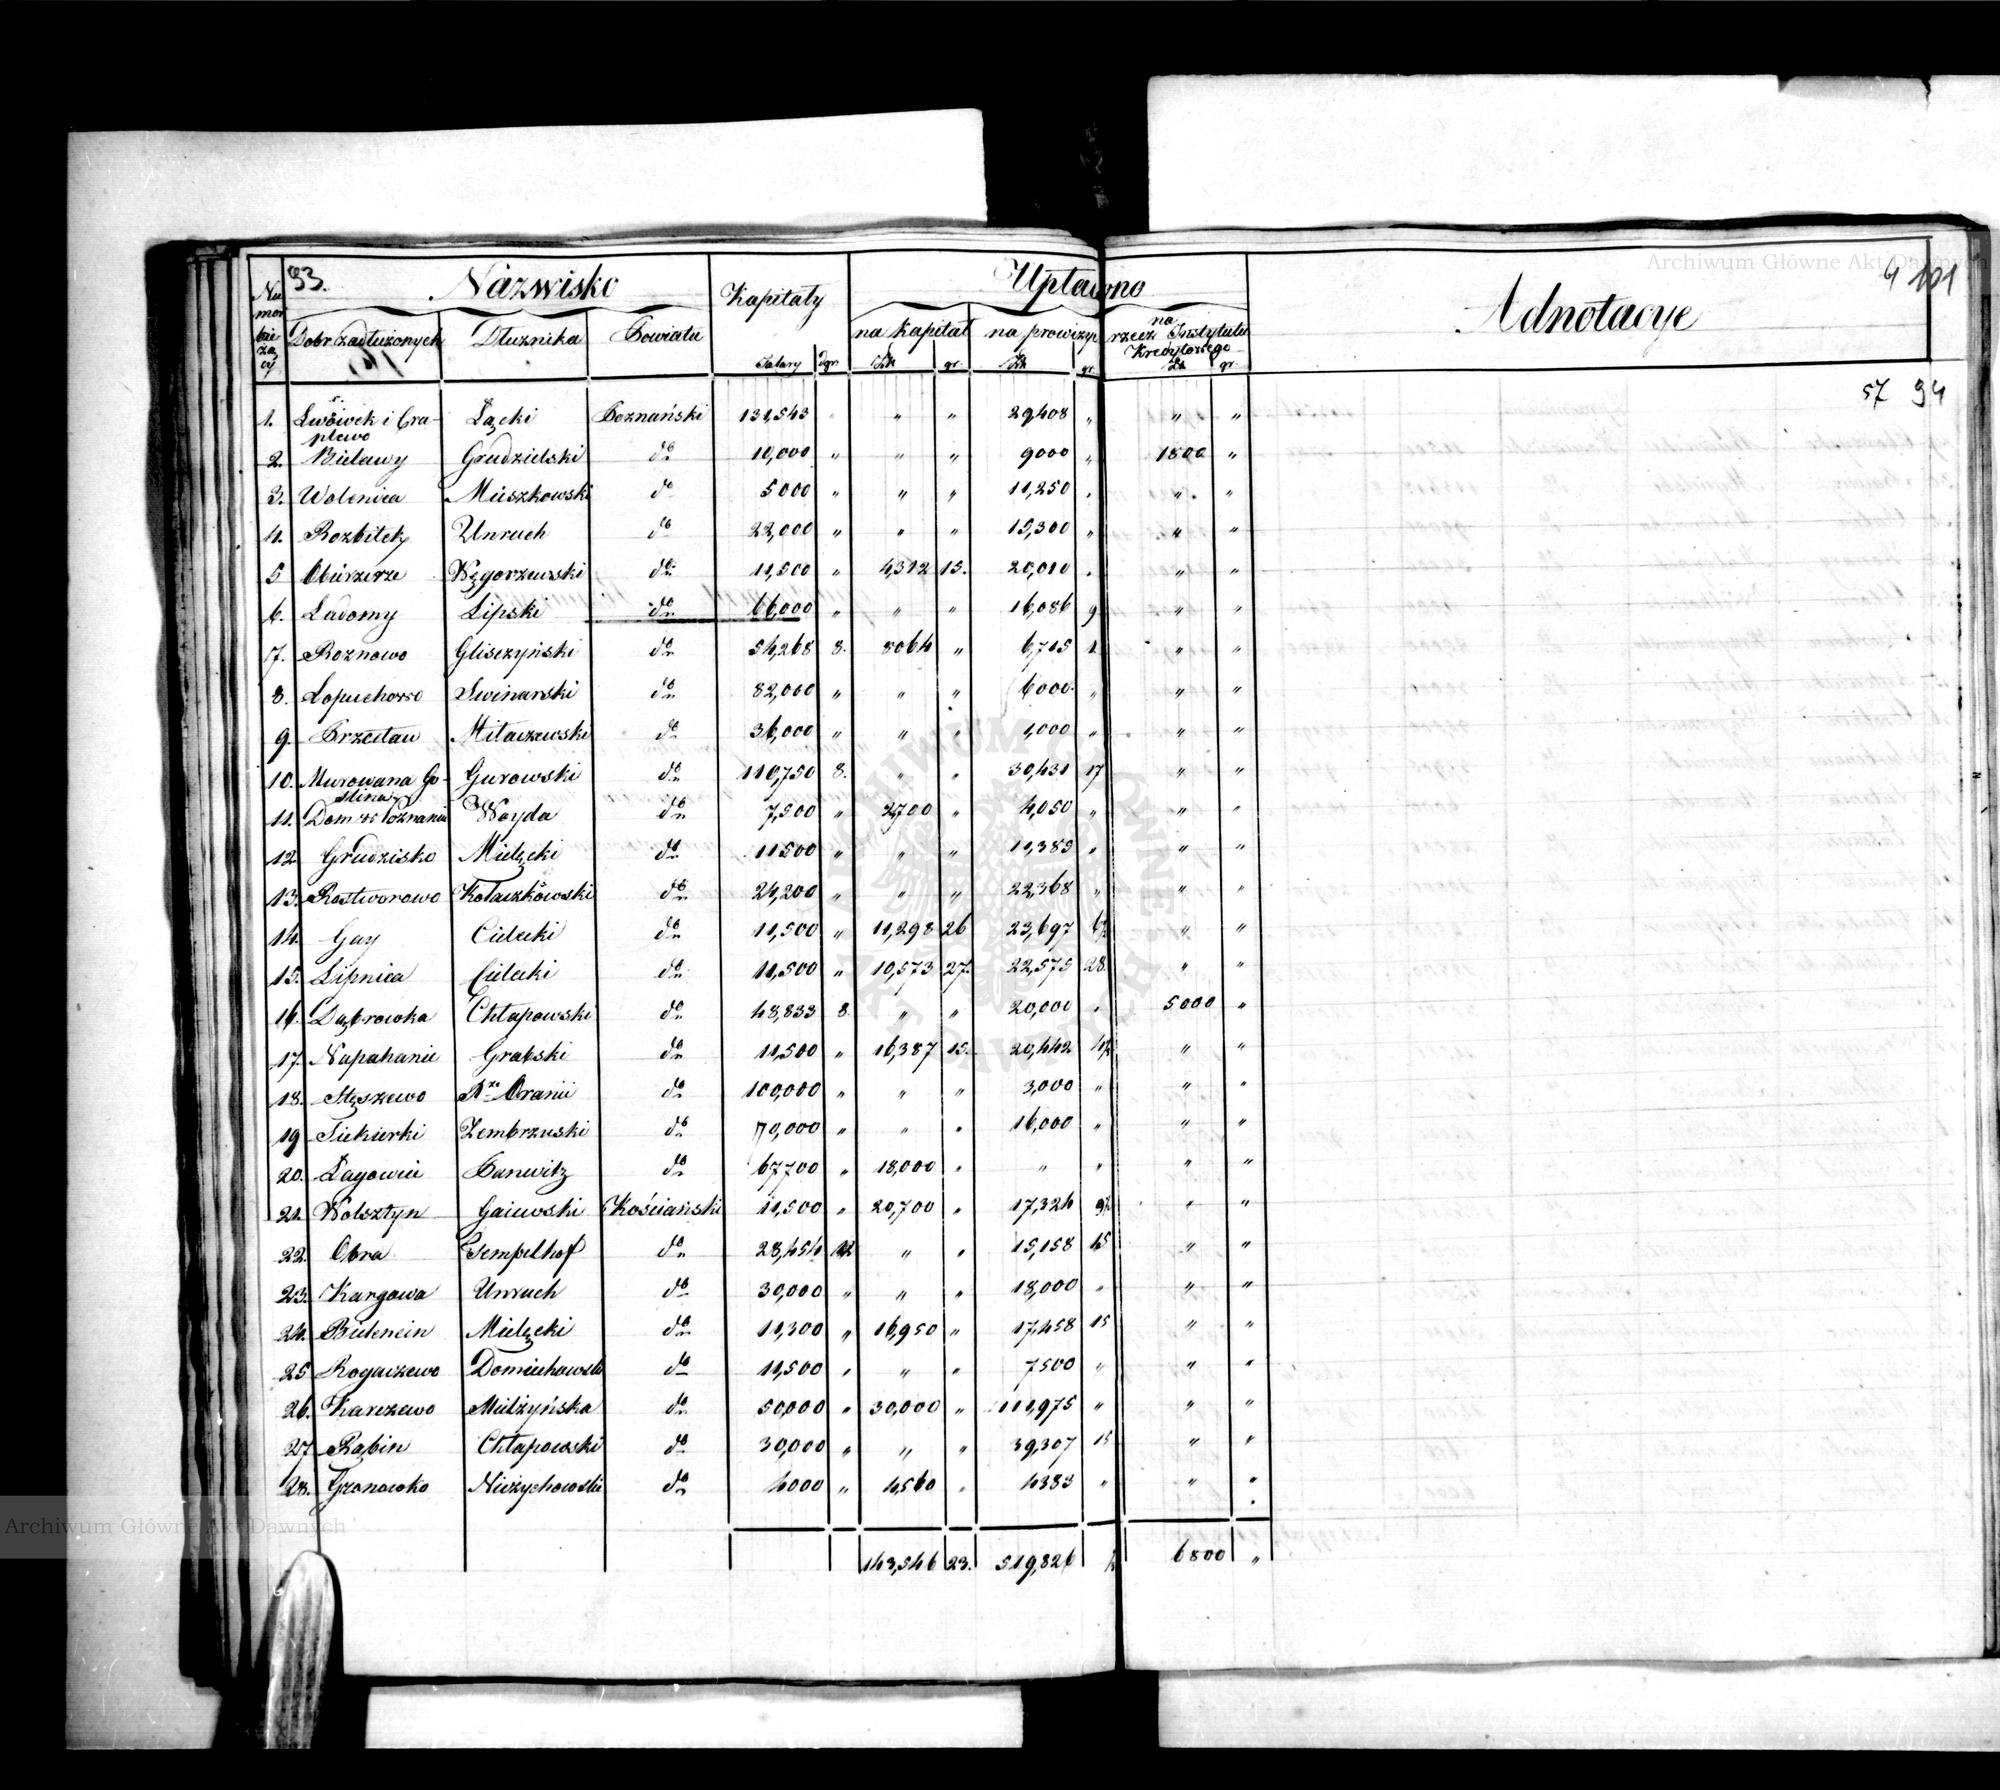 Archiwum Główne Akt Dawnych
4 101
93. Nazwisko Kapitały Upłacono Adnotacye
Numer bieżący Dobr zadłużonych Dłużnika Powiatu na kapitał na prowizyą na rzecz Instytutu Kredytowego
Talary dgr gr. gr. gr.
57 94
1. Lwówek i Gra- Łącki Poznański 131,543 " " 29408 " " "
plewo
2. Bielawy Grudzielski do 10,000 " " " 9000 " 1800 "
3. Wolenica Muszkowski do 5000 " " " 11,250 " " "
4. Rozbitek Unruch do 22,000 " " " 15,300 " " "
5 Obiezierze Węgorzewski do 11,500 " 4,312 15. 20,010 " " "
6. Ladomy Lipski do 66,000 " " " 16,086 9 " "
7. Roznowo Gliszczyński do 54,268 8. 8064 " 6,715 1 " "
8. Łopuchowo Swinarski do 82,000 " " " 6000 " " "
9. Przecław Miłaczewski do 36,000 " " " 1,000 " " "
10. Murowana Go- Gurowski do 110,750 8. " " 30,431 17 " "
slina
11. Dom w Poznaniu Woyda do 7,500 " 2700 " 4,050 " " "
12 Grudzisko Mielęcki do 11500 " " " 11,385 " " "
13. Rostworowo Kołaczkowski do 24,200 " " " 22,368 " " "
14. Gay Cielecki do 11,500 " 11,298 26 23,697 " "
15. Lipnica Cielecki do 11,500 " 10,573 27. 22,575 28. " "
16. Dąbrowka Chłapowski do 48,833 8. " " 20,000 " 5000 "
17. Napachanie Grabski do 11,500 " 16,387 15. 20,442 " "
18. Stęszewo Xże Oranii do 100,000 " " " 3,000 " " "
19 Siekierki Zembrzuski do 70,000 " " " 16,000 " " "
20. Łagowiec Panwitz do 67700 " 18,000 " " " " "
21. Wolsztyn Gaiewski Kościański 11,500 " 20,700 " 17,324 " "
22. Obra Tempelhof do 28,454 12 " " 15,158 15 " "
23. Kargowa Unruch do 30,000 " " " 18,000 " " "
24. Bielencin Mielęcki do 11,300 " 16,950 " 17,458 15 " "
25 Rogaczewo Domiechowski do 11,500 " " " 7500 " " "
26. Karczewo Mielżyńska do 50,000 " 30,000 " 111,975 " " "
27 Rąbin Chłapowski do 30,000 " " " 39,307 15 " "
28. Gronowko Nieżychowski do 4000 " 4,560 " 4383 " " "
143,546 23. 519,826 6800 "
Archiwum Główne Akt Dawnych
ARCHIWUM GŁÓWNE